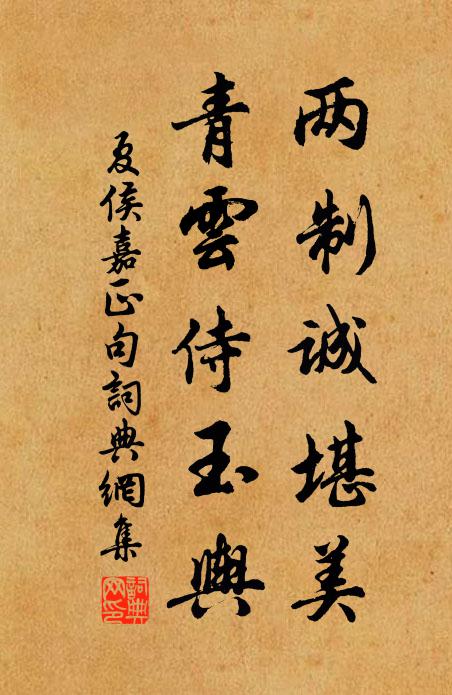 两制诚堪美
青雲侍玉輿
夏侯嘉正句詞典網集
詞典網印